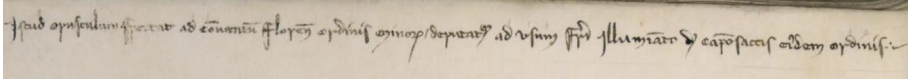 Istud opusculum spectat ad conventum Florentinum ordinis minorum deputatum ad usum fratris Illuminati de Caponsaccis eiusdem ordinis.